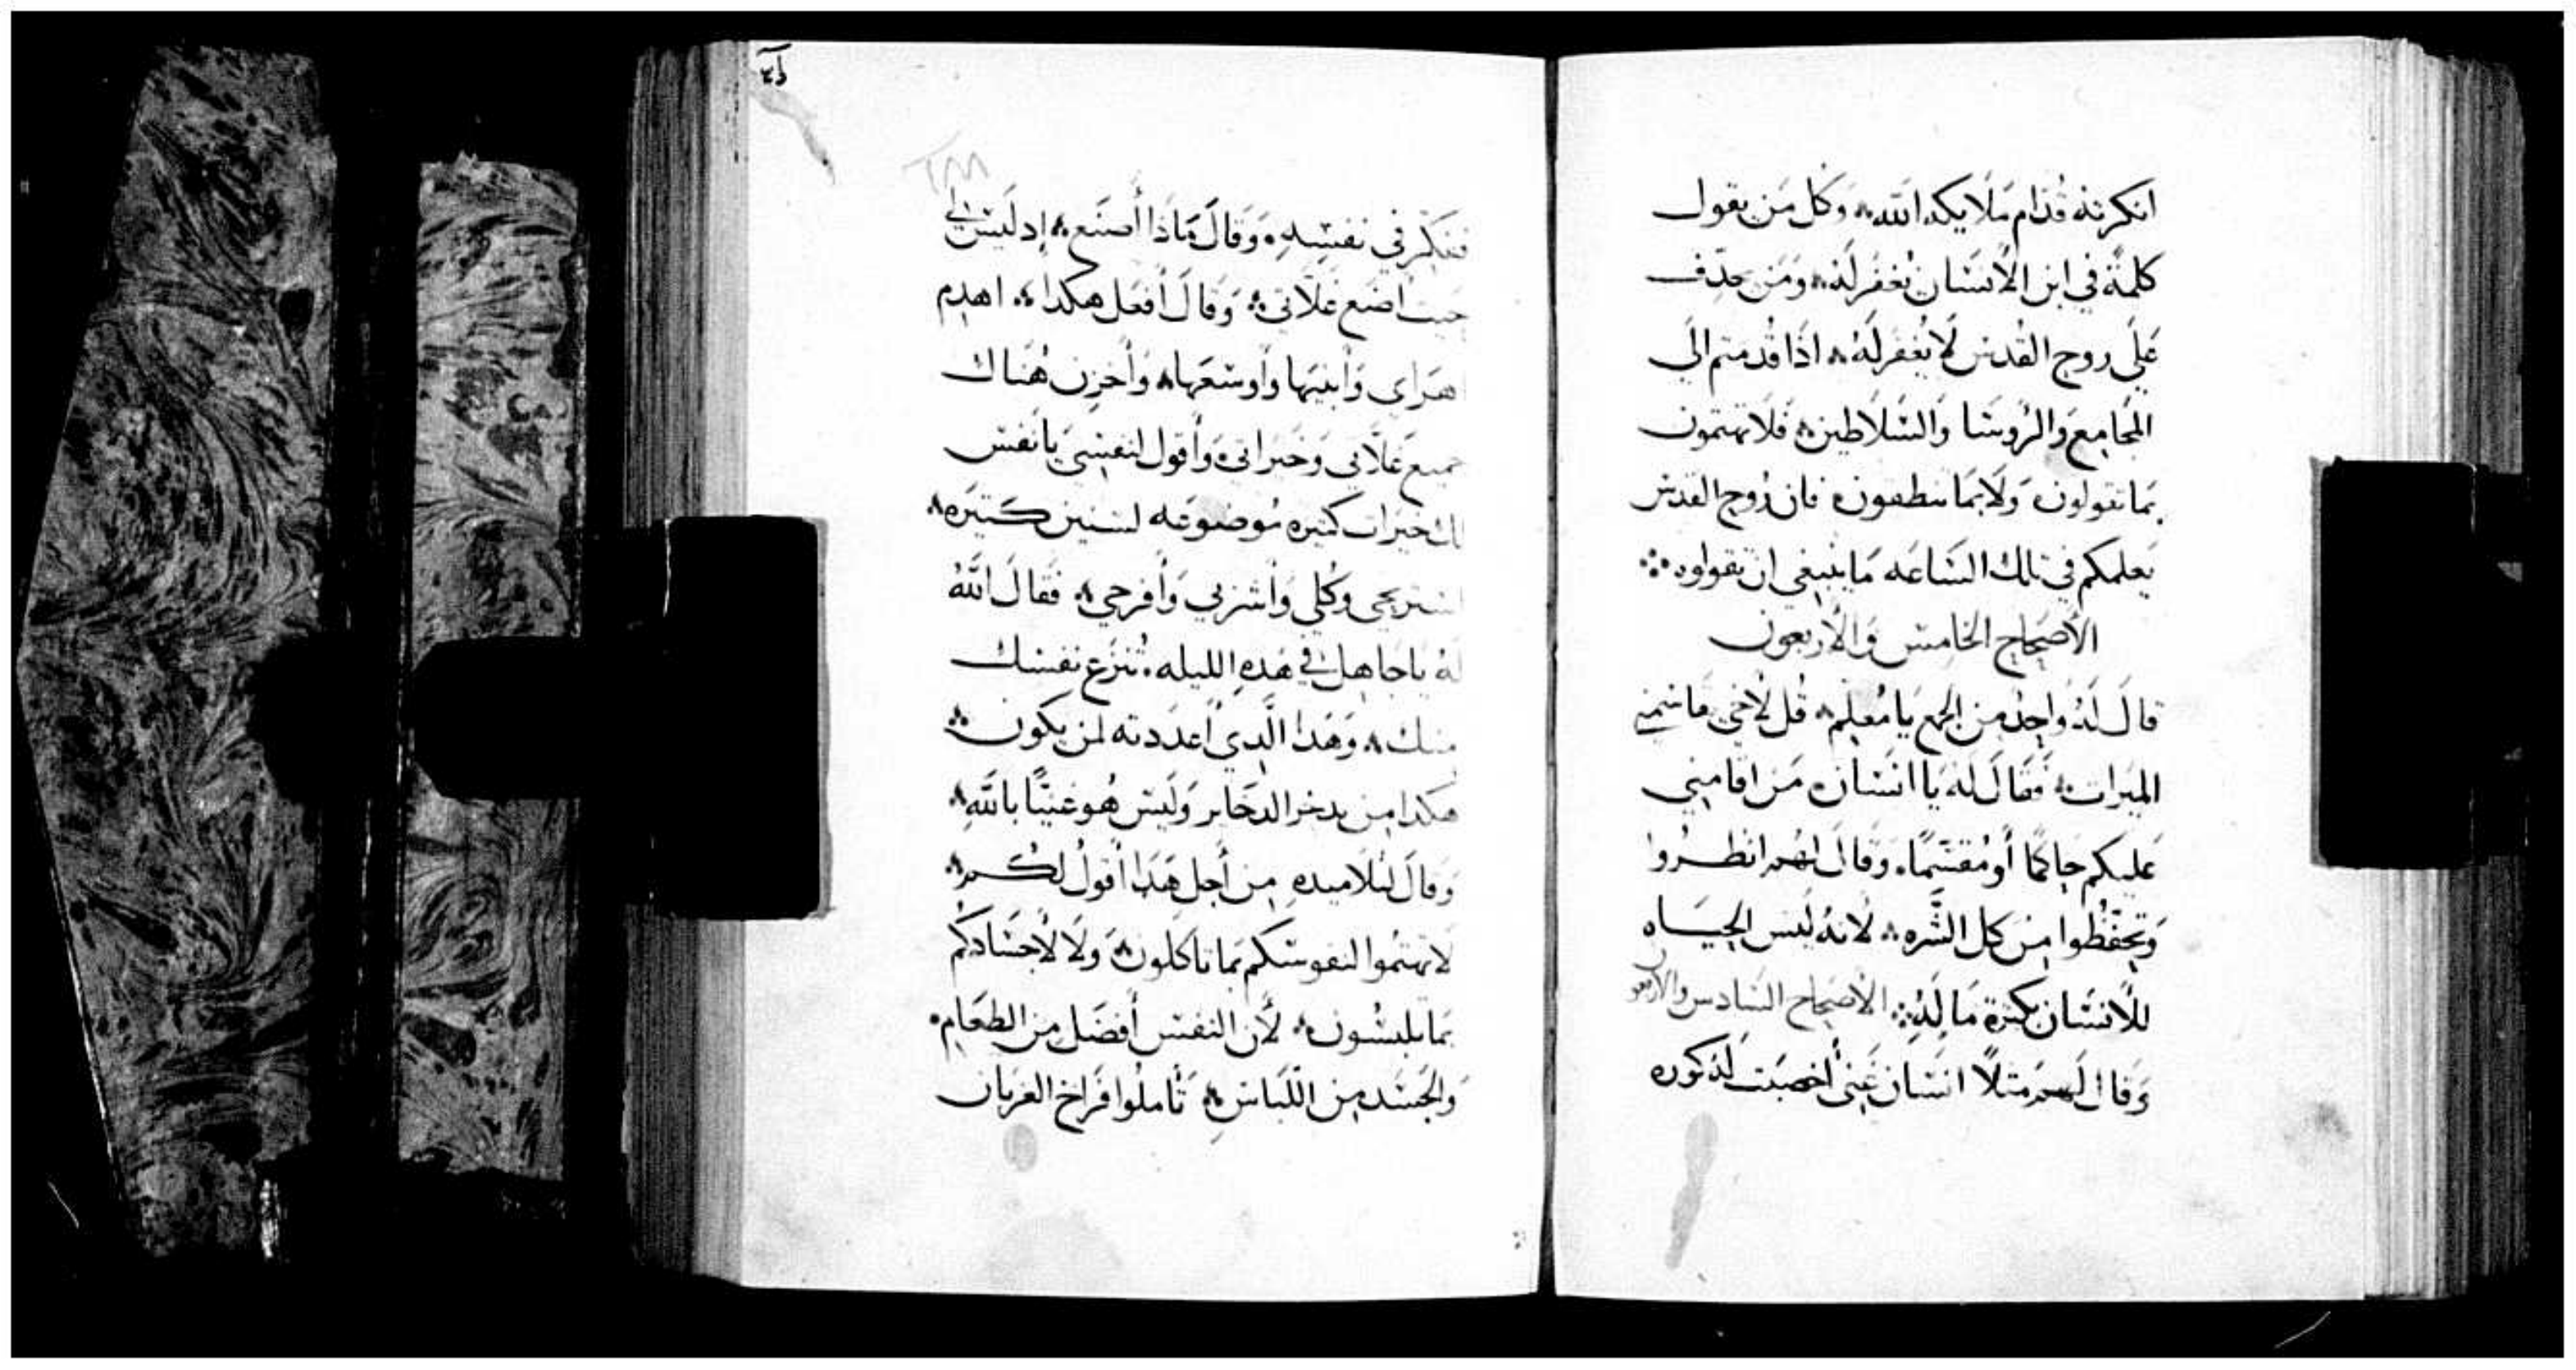 انكرته قدام ملايكه الله ۞ وَكل مَن يقول
كلمَة في ابن الاٍنسَان يُغفر لَهُ ۞ وَمَن جدّف
عَلَى روح القدس لَا يُغفر لَهُ ۞ اذَا قُدمتم الَى
المجَامِع وَالرُوسَا وَالسَّلَاطين ۞ فَلَا تهتمون
بمَا تقولون وَلَا بمَا تنطقون فان رُوح القدس
يَعلمكم في تلك السَاعَه مَا ينبغي ان تقولوه ۞
الاصحَاح الخَامس وَالاربعون
قالَ لَهُ وَاحِدُ من الجمع يَا مُعَلِم ۞ قُل لاخي يقاسمني
الميرَات ۞ فَقَالَ لهَ يَا انسَان مَن اقامني
عَليكم حَاكمًا أو مُقسّمًا ۞ وَقالَ لهم انظروا
وَتحفَّظُوا من كل الشَّره ۞ لانهُ ليس الحيَاه
للانسَان بكترة مَا لَهُ ۞ الاصحَاح السَادس والاربعون
وَقال لهم مَتلاً انسَان غَني أخصَبت لَهُ كوره
ففكّر في نفسِهِ ۞ وَقالَ مَاذَا أصنَع ۞ إد ليس لي
حيت اضَع غَلَّاتي ۞ وَقالَ أفعَل هكدا ۞ اهدِم
اهرَاي وَأبنيَها وَأوسعَها ۞ وَأخزن هُنَاك
جميع غَلَّاتي وَخَيرَاتي ۞ وَأقول لنفسي يَا نَفس
لك خيرَات كتيره مَوضوعَه لسنين كَتيَره ۞
استريحي وَكُلي وَأشربي وَأفرحي ۞ فقَالَ اللهُ
لَهُ يا جَاهل في هَدهِ الليله ۞ تُنزع نفسك
منك ۞ وَهَدا الَّدِي أعدَدته لمن يكون ۞
هكدا من يدخر الدخَاير وَليس هُو غنيًّا باللهِ ۞
وَقالَ لتلَاميدهِ من أجل هَدَا أقولُ لكُم ۞
لا تهتمُوا لنفوسكم بمَا تاكلون ۞ وَلَا لأجسَادكُم
بمَا تلبسُون ۞ لأن النفس أفضَل من الطعَام ۞
وَالجَسَد من اللّبَاس ۞ تَأملُوا فرَاخ الغربَان